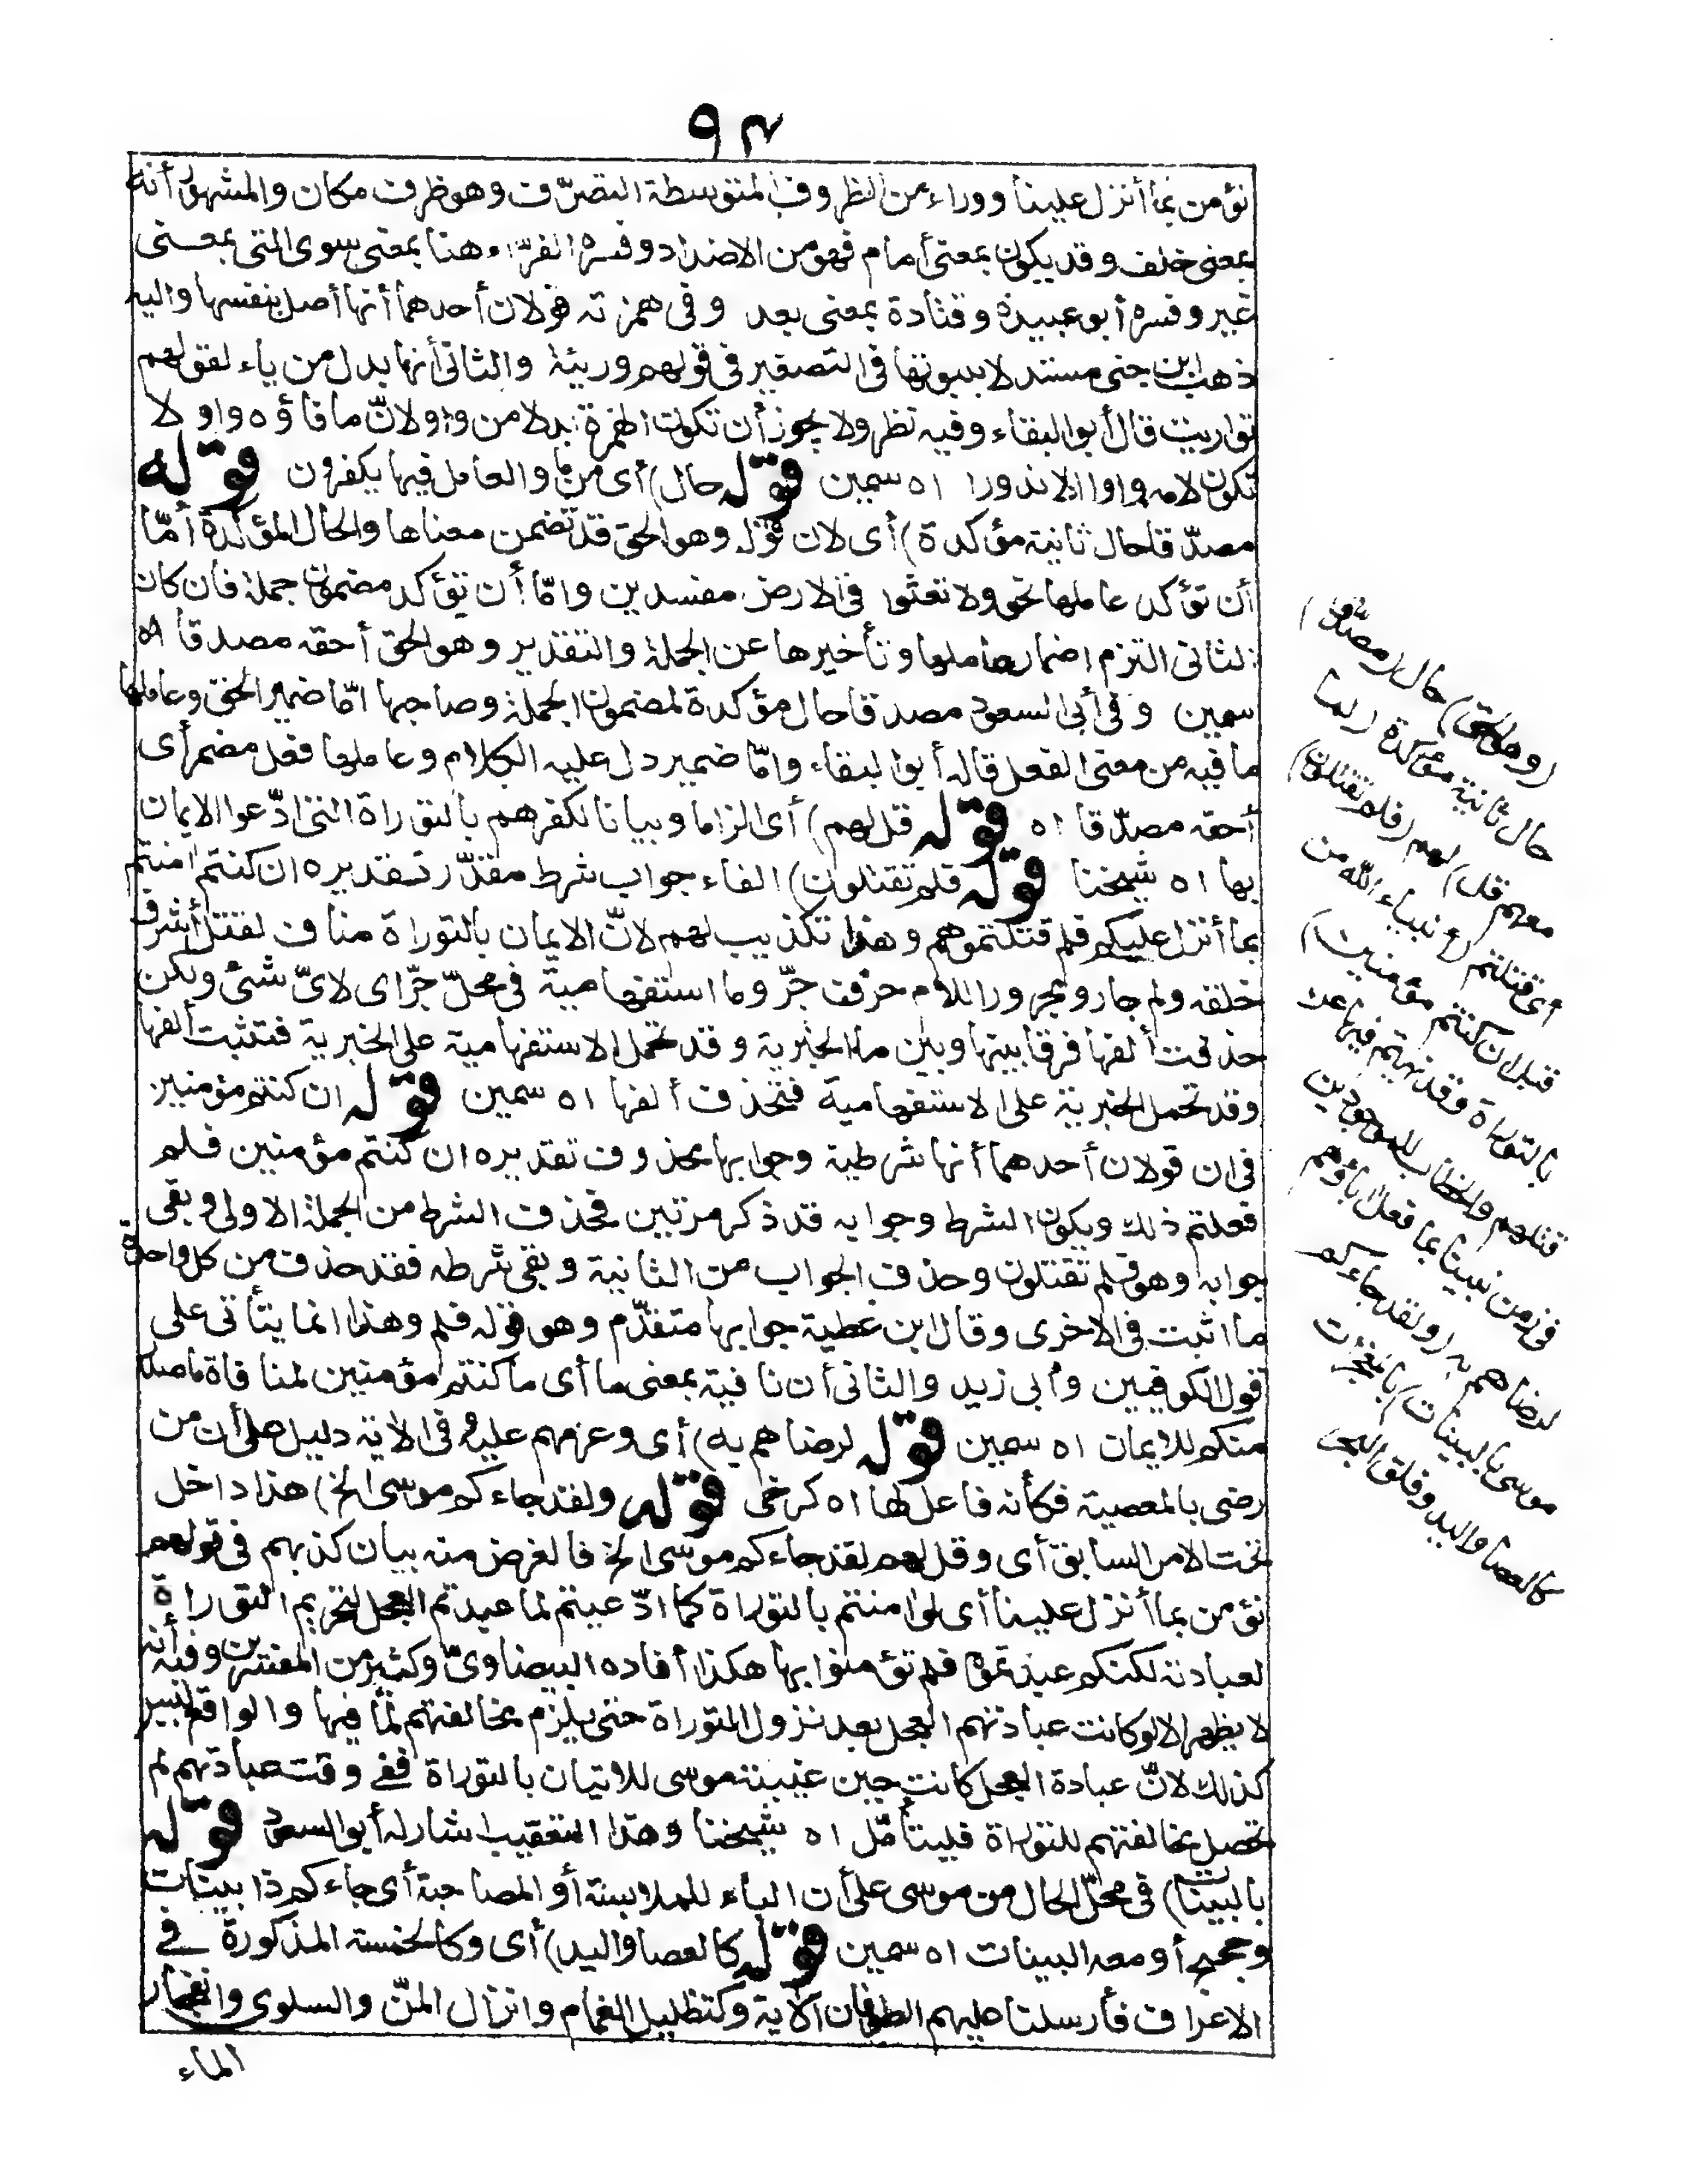 ٩٣
نؤمن بما أنزل علينا ووراء من الظروف المتوسطة التصرّف وهو ظرف مكان والمشهور أنه
بمعنى خلف وقد يكون بمعنى أمام فهو من الاضداد وفسره الفرّاء هنا بمعنى سوى التى بمعنى
غير وفسره أبو عبيدة وقتادة بمعنى بعد وفى همزته قولان أحدهما أنها أصل بنفسها واليه
ذهب ابن جنى مستندلا بثبوتها فى التصغير فى قولهم وريئة والثانى أنها بدل من ياء لقولهم
تواريت قال أبو البقاء وفيه نظر ولا يجوز أن تكون الهمزة بدلا من واو لانّ ما فاؤه واو لا
تكون لامه واوا الا ندورا اه سمين قوله حال) أى من ما والعامل فيها يكفرون قوله
مصدّقا حال ثانية مؤكدة) أى لان قوله وهو الحق قد تضمن معناها والحال المؤكدة امّا
أن تؤكد عاملها نحو ولا تعثوا فى الارض مفسدين وامّا أن تؤكد مضمون جملة فان كان
الثانى التزم اضمار عاملها وتأخيرها عن الجملة والتقدير وهو الحق أحقه مصدقا اه
سمين وفى أبى السعود مصدقا حال مؤكدة لمضمون الجملة وصاحبها امّا ضمير الحق وعاملها
ما فيه من معنى الفعل قاله أبو البقاء وامّا ضمير دل عليه الكلام وعاملها فعل مضمر أى
أحقه مصدّقا اه قوله قل لهم) أى الزاما وبيانا لكفرهم بالتوراة التى ادّعوا الايمان
بها اه شيخنا قوله فلم تقتلون) الفاء جواب شرط مقدّر تقديره ان كنتم امنتم
بما أنزل عليكم فلم قتلتموهم وهذا تكذيب لهم لانّ الايمان بالتوراة مناف لقتل أشرف
خلقه ولم جار ومجرور اللام حرف جرّ وما استفهامية فى محلّ جرّ اى لاىّ شئ ولكن
حذفت ألفها فرقا بينها وبين ما الخبرية وقد تحمل الاستفهامية على الخبرية فتثبت ألفها
وقد تحمل الخبرية على الاستفهامية فتحذف ألفها اه سمين قوله ان كنتم مؤمنين
فى ان قولان أحدهما أنها شرطية وجوابها محذوف تقديره ان كنتم مؤمنين فلم
فعلتم ذلك ويكون الشرط وجوابه قد ذكر مرتين فحذف الشرط من الجملة الاولى وبقى
جوابه وهو فلم تقتلون وحذف الجواب من الثانية وبقى شرطه فقد حذف من كل واحدة
ما اثبت فى الاخرى وقال ابن عطية جوابها متقدّم وهو قوله فلم وهذا انما يتأتى على
قول الكوفيين وأبى زيد والثانى أن نافية بمعنى ما أى ما كنتم مؤمنين لمنافاة ما صدر
منكم للايمان اه سمين قوله لرضاهم به) أى وعزمهم عليه وفى الاية دليل على أن من
رضى بالمعصية فكأنه فاعل لها اه كرخى قوله ولقد جاءكم موسى الخ) هذا داخل
تحت الامر السابق أى وقل لهم لقد جاءكم موسى الخ فالغرض منه بيان كذبهم فى قولهم
نؤمن بما أنزل علينا أى لو امنتم بالتوراة كما ادّعيتم لما عبدتم العجل لتحريم التوراة
لعبادته لكنكم عبدتموه فلم تؤمنوا بها هكذا أفاده البيضاوىّ وكثير من المفسّرين وفيه أنه
لا يظهر الا لو كانت عبادتهم العجل بعد نزول التوراة حتى يلزم مخالفتهم لما فيها والواقع ليس
كذلك لانّ عبادة العجل كانت حين غيبته موسى للاتيان بالتوراة ففى وقت عبادتهم لم
تحصل مخالفتهم للتوراة فليتأمّل اه شيخنا وهذا التعقيب اشار له أبو السعود قوله
بالبينات) فى محلّ الحال من موسى على أن الباء للملابسة أو المصاحبة أى جاءكم ذا بينات
وحجج أو معه البينات اه سمين قوله كالعصا واليد) أى وكالخمسة المذكورة فى
الاعراف فأرسلنا عليهم الطوفان الآية وكتظليل الغمام وانزال المنّ والسلوى وانفجار
الماء
(وهو الحق) حال (مصدّقا)
حال ثانية مؤكدة (لما
معهم قل) لهم (فلم تقتلون)
أى قتلتم (أنبياء الله من
قبل ان كنتم مؤمنين)
بالتوراة وقد نهيتم فيها عن
قتلهم والخطاب للموجودين
فى زمن نبينا بما فعل اباؤهم
لرضاهم به (ولقد جاءكم
موسى بالبينات) بالمعجزات
كالعصا واليد وفلق البحر